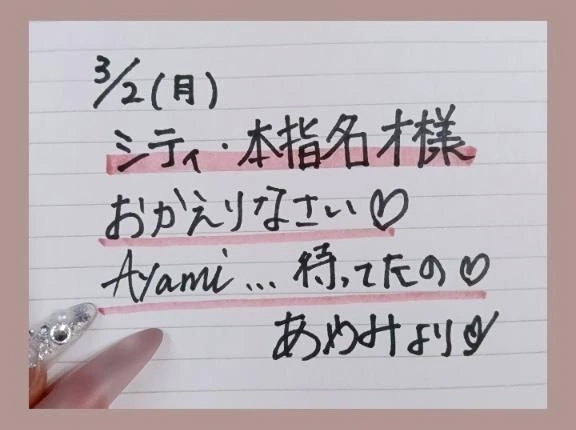 3/2(月)
シティ・本指名才様
おかえりなさい♡
Ayami... 待ってたの♡
あやみより♡